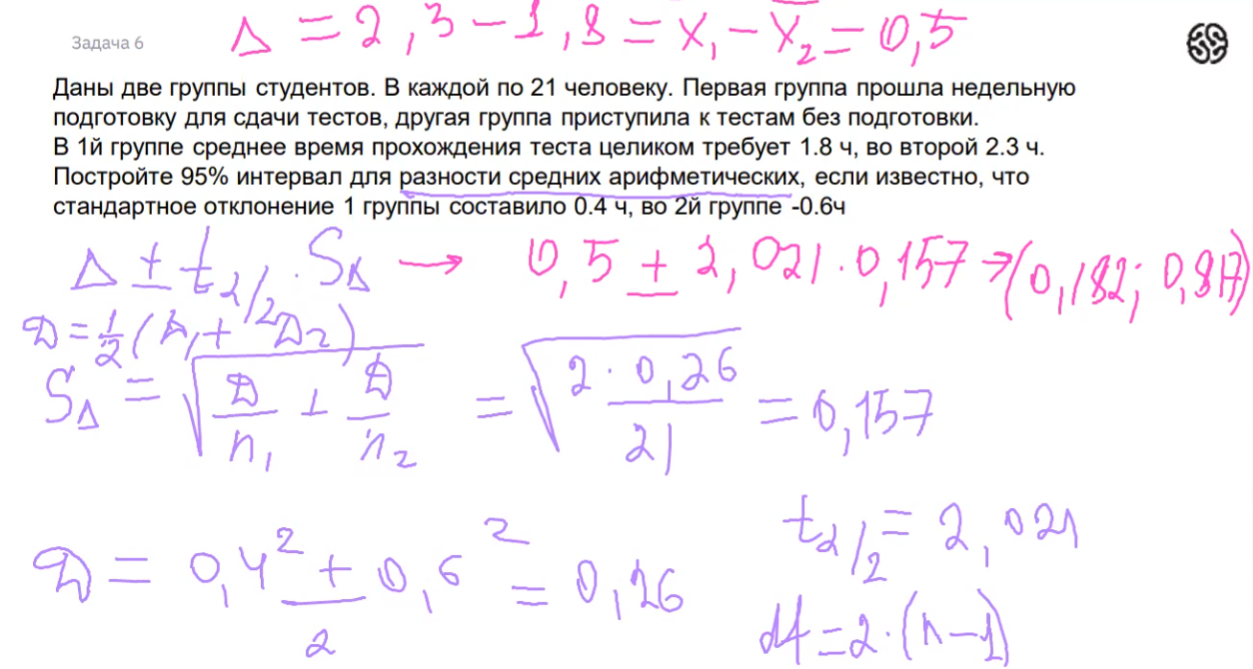 Задача 6
Δ = 2,3 - 1,8 = x̄₁ - x̄₂ = 0,5
Даны две группы студентов. В каждой по 21 человеку. Первая группа прошла недельную
подготовку для сдачи тестов, другая группа приступила к тестам без подготовки.
В 1й группе среднее время прохождения теста целиком требует 1.8 ч, во второй 2.3 ч.
Постройте 95% интервал для разности средних арифметических, если известно, что
стандартное отклонение 1 группы составило 0.4 ч, во 2й группе -0.6ч
Δ ± t α/2 · S_Δ → 0,5 ± 2,021 · 0,157 → (0,182; 0,817)
D = 1/2 (D₁ + D₂)
S_Δ = √(D/n₁ + D/n₂) = √(2 · 0,26 / 21) = 0,157
t α/2 = 2,021
D = (0,4² + 0,6²)/2 = 0,26
df = 2 · (n - 1)